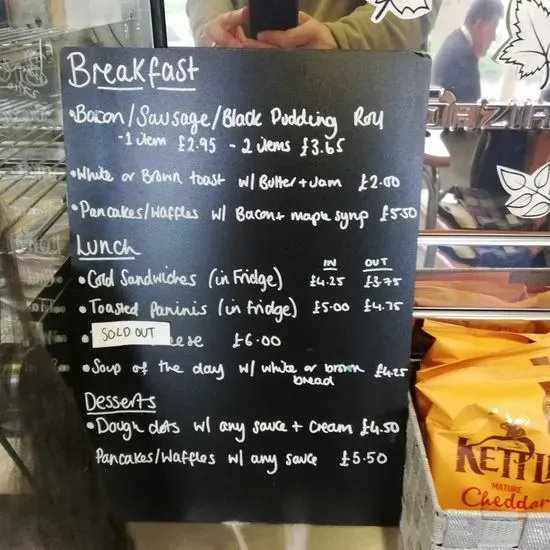 Breakfast
• Bacon/Sausage/Black Pudding Roll
- 1 item £2.95 - 2 items £3.65
• White or Brown toast w/ Butter + Jam £2.00
• Pancakes/Waffles w/ Bacon + maple syrup £5.50
Lunch
IN OUT
• Cold Sandwiches (in Fridge) £4.25 £3.75
• Toasted Paninis (in fridge) £5.00 £4.75
• SOLD OUT £6.00
• Soup of the day w/ white or brown bread £4.25
Desserts
• Dough dots w/ any sauce + Cream £4.50
Pancakes/Waffles w/ any sauce £5.50
KETTL
MATURE
Cheddar